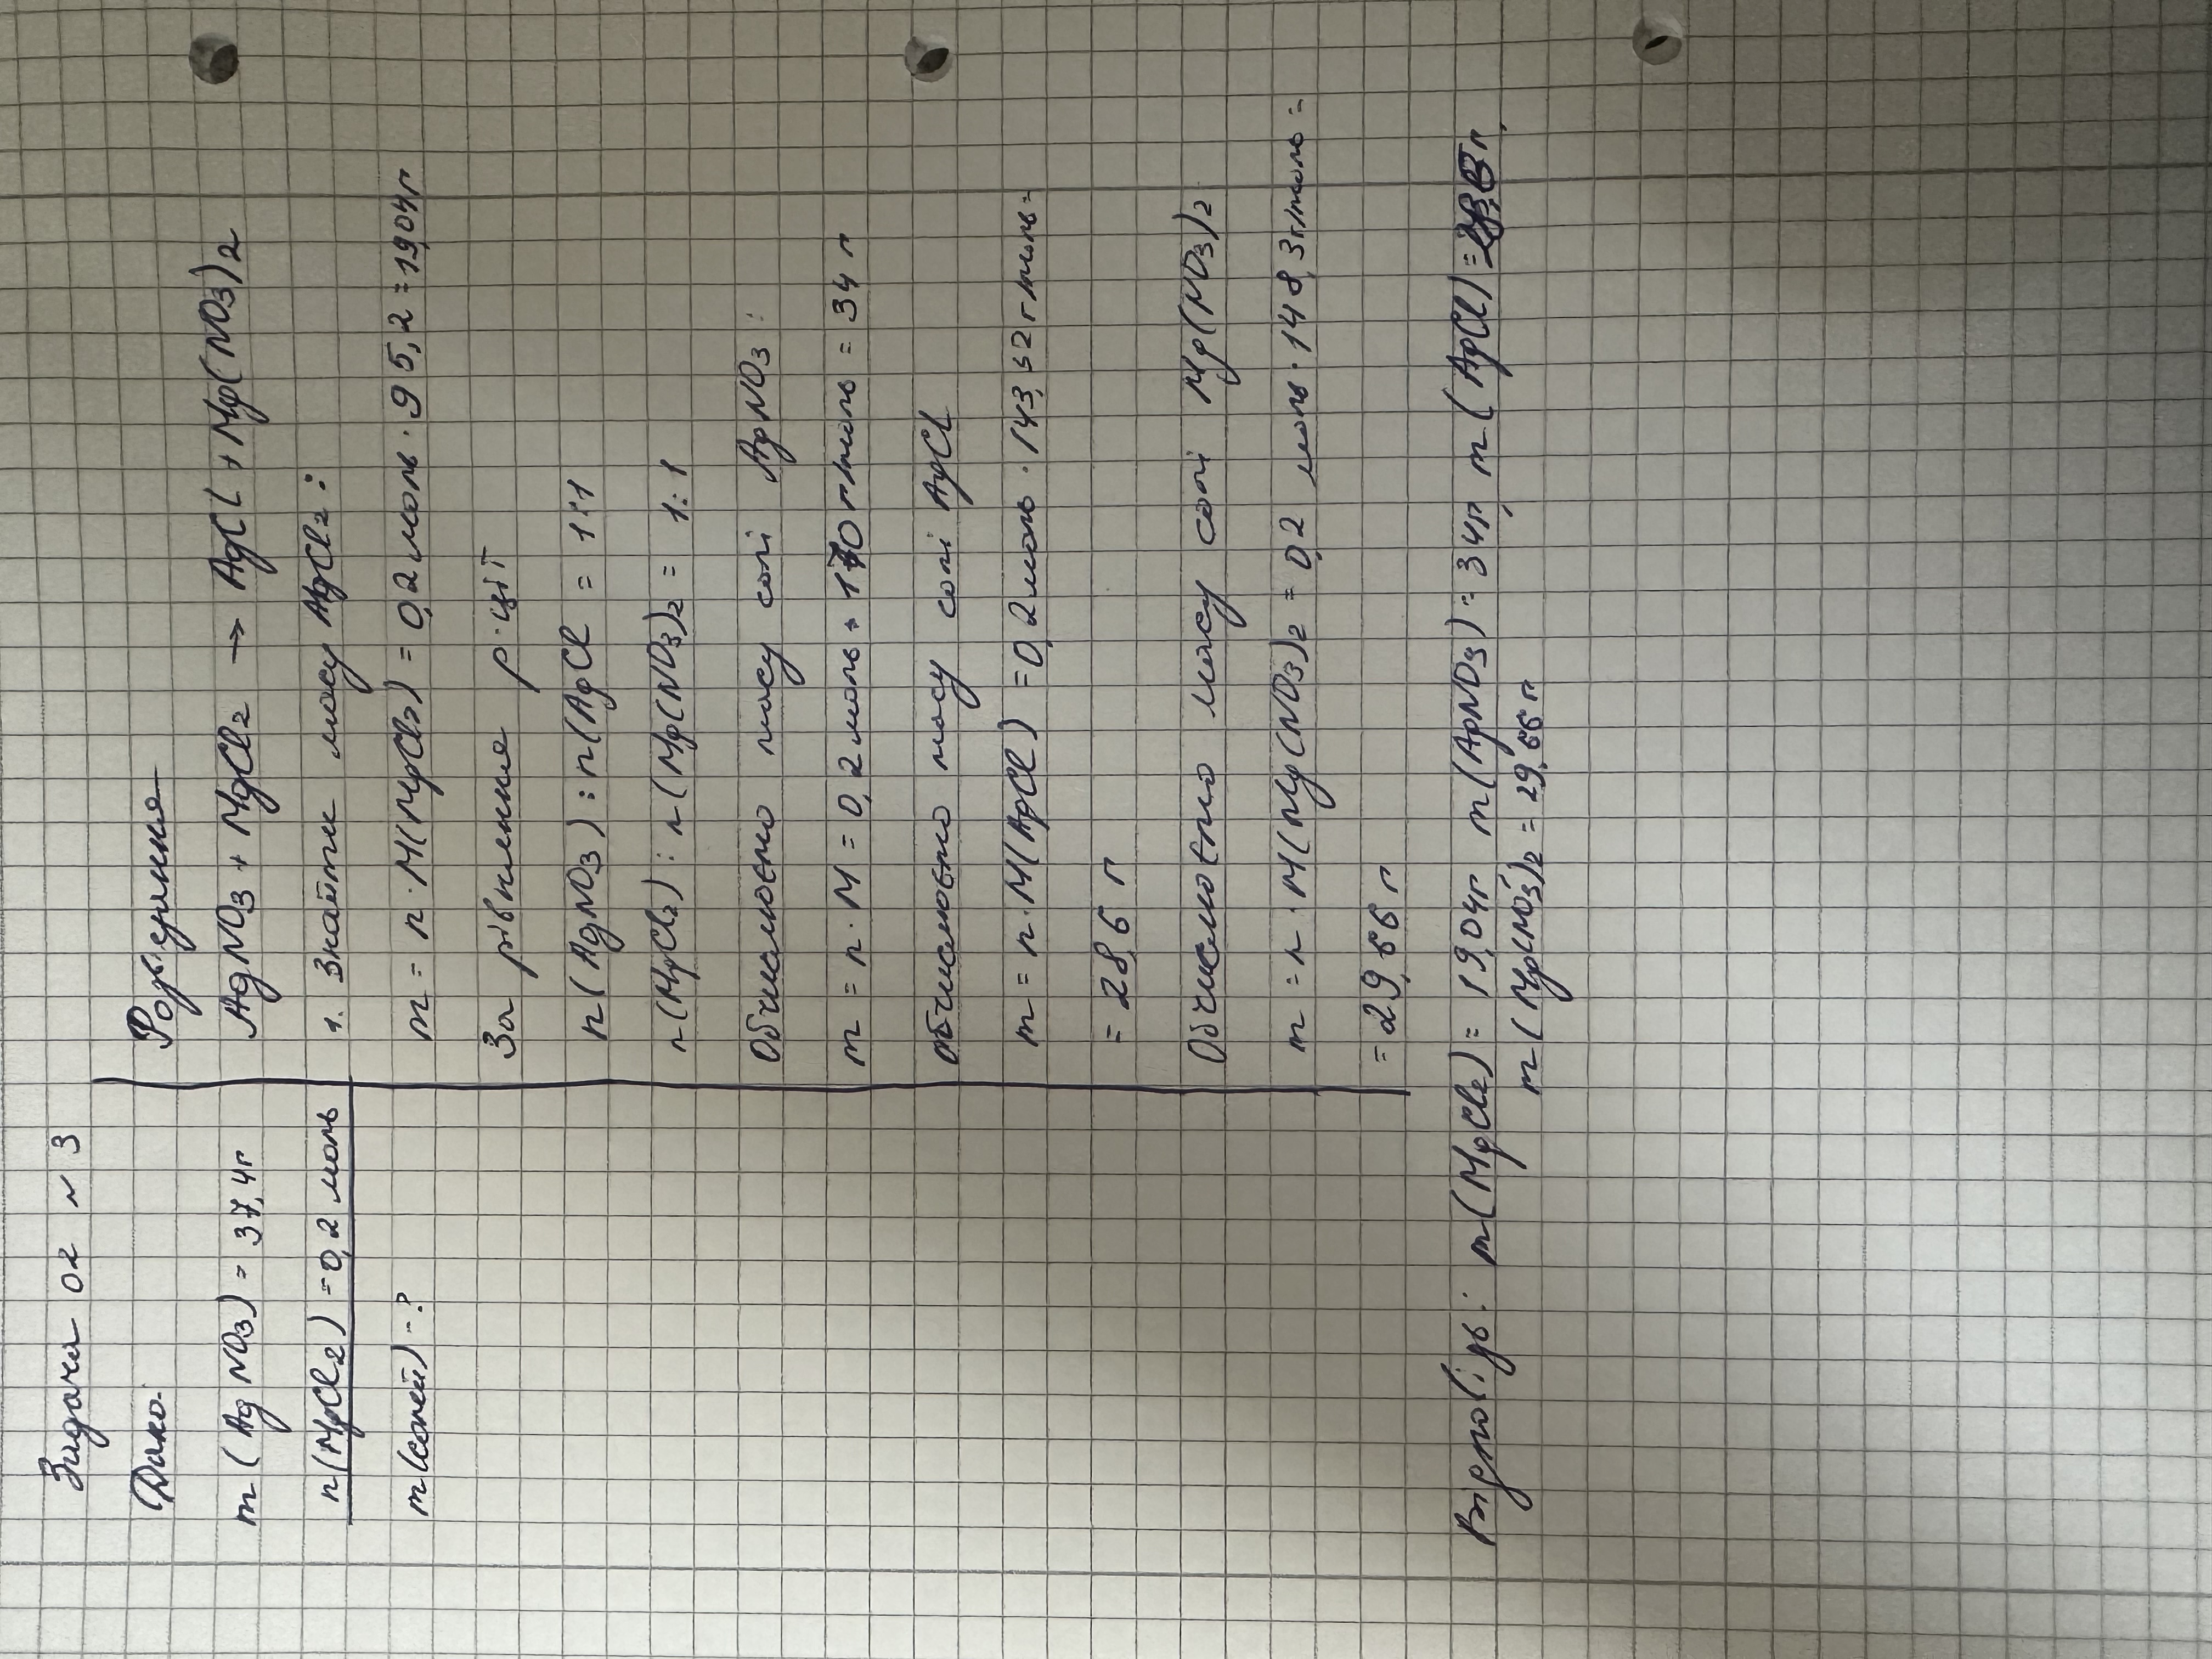 Задача 02 № 3
Дано:
m (Ag NO3) = 37,4г
n(MgCl2) = 0,2 моль
m(солей) - ?
Розв'язання
AgNO3 + MgCl2 → AgCl + Mg(NO3)2
1. Знайти масу MgCl2:
m = n · M(MgCl2) = 0,2 моль · 95,2 = 19,04г
За рівняння р-ції
n(AgNO3) : n(AgCl = 1:1
n(MgCl2) : n(Mg(NO3)2 = 1:1
Обчислюємо масу солі AgNO3:
m = n · M = 0,2 моль · 170 г/моль = 34 г
Обчислюємо масу солі AgCl
m = n · M(AgCl) = 0,2 моль · 143,32 г/моль =
= 28,6 г
Обчислюємо масу солі Mg(NO3)2
m = n · M(Mg(NO3)2 = 0,2 моль · 148,3г/моль =
= 29,66 г
Відповідь: m(MgCl2) = 19,04г, m(AgNO3) = 34г, m(AgCl) = 28,6г,
m(Mg(NO3)2 = 29,66 г